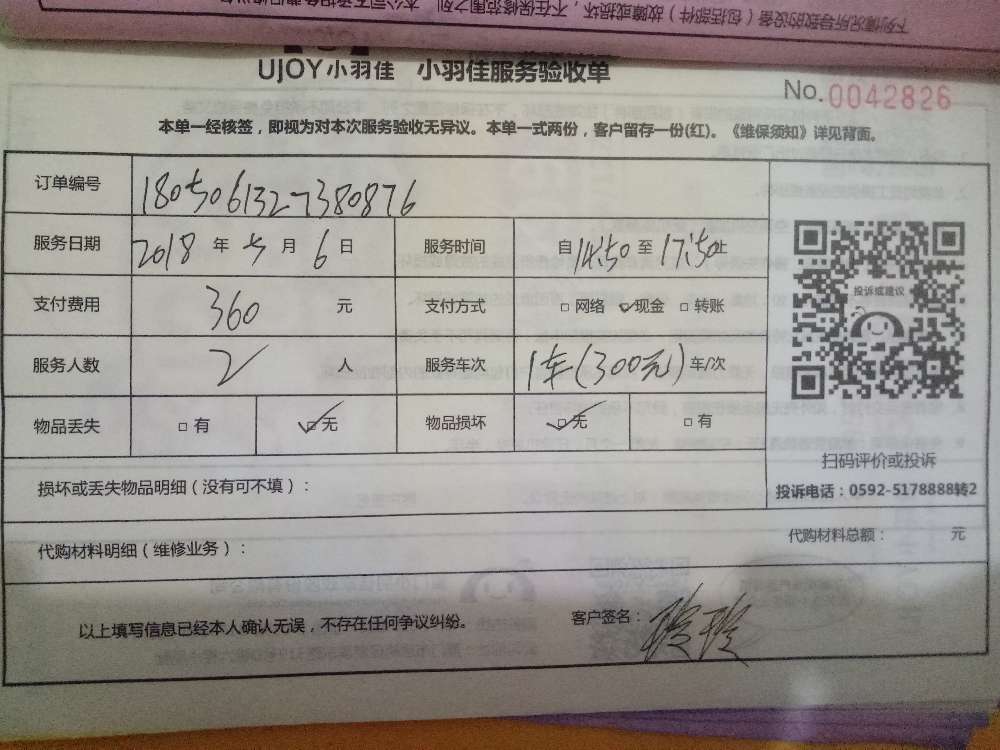 下列情况所导致的设备(包括部件)故障或损坏，不在保修范围之列
UJOY小羽佳 小羽佳服务验收单
No.0042826
本单一经核签，即视为对本次服务验收无异议。本单一式两份，客户留存一份(红)。《维保须知》详见背面。
订单编号 1805061327380876
服务日期 2018 年 5 月 6 日 服务时间 自14:50至17:50止
投诉或建议
支付费用 360 元 支付方式 □网络 ☑现金 □转账
服务人数 2 人 服务车次 1车(300元) 车/次
物品丢失 □有 ☑无 物品损坏 ☑无 □有
扫码评价或投诉
投诉电话：0592-5178888转2
损坏或丢失物品明细（没有可不填）：
代购材料明细（维修业务）： 代购材料总额： 元
以上填写信息已经本人确认无误，不存在任何争议纠纷。 客户签名：玲玲